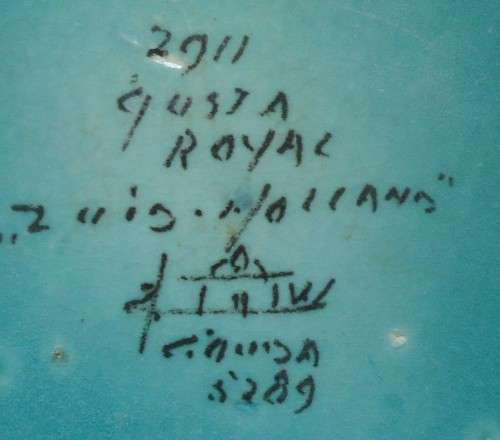 2911
GUSTA
ROYAL
„ZUID-HOLLAND"
GOUDA
5289